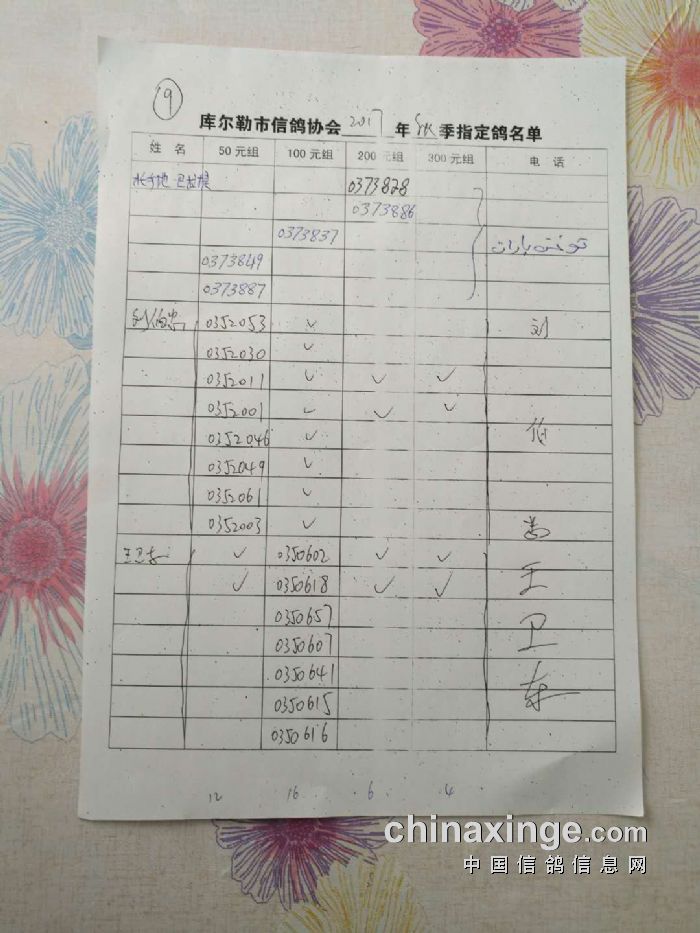 19
库尔勒市信鸽协会 2017 年 秋 季指定鸽名单
姓 名 50元组 100元组 200元组 300元组 电 话
0373828
0373886
0373837
0373849
0373887
0352053 ✓ 刘
0352030 ✓
0352011 ✓ ✓ ✓
0352001 ✓ ✓ ✓
0352046 ✓
0352049 ✓
0352061 ✓
0352003 ✓
王卫东 ✓ 0350602 ✓ ✓ 王
✓ 0350618 ✓ ✓
0350657 卫
0350607
0350641 东
0350615
0350616
12 16 6 4
chinaxinge.com
中国信鸽信息网